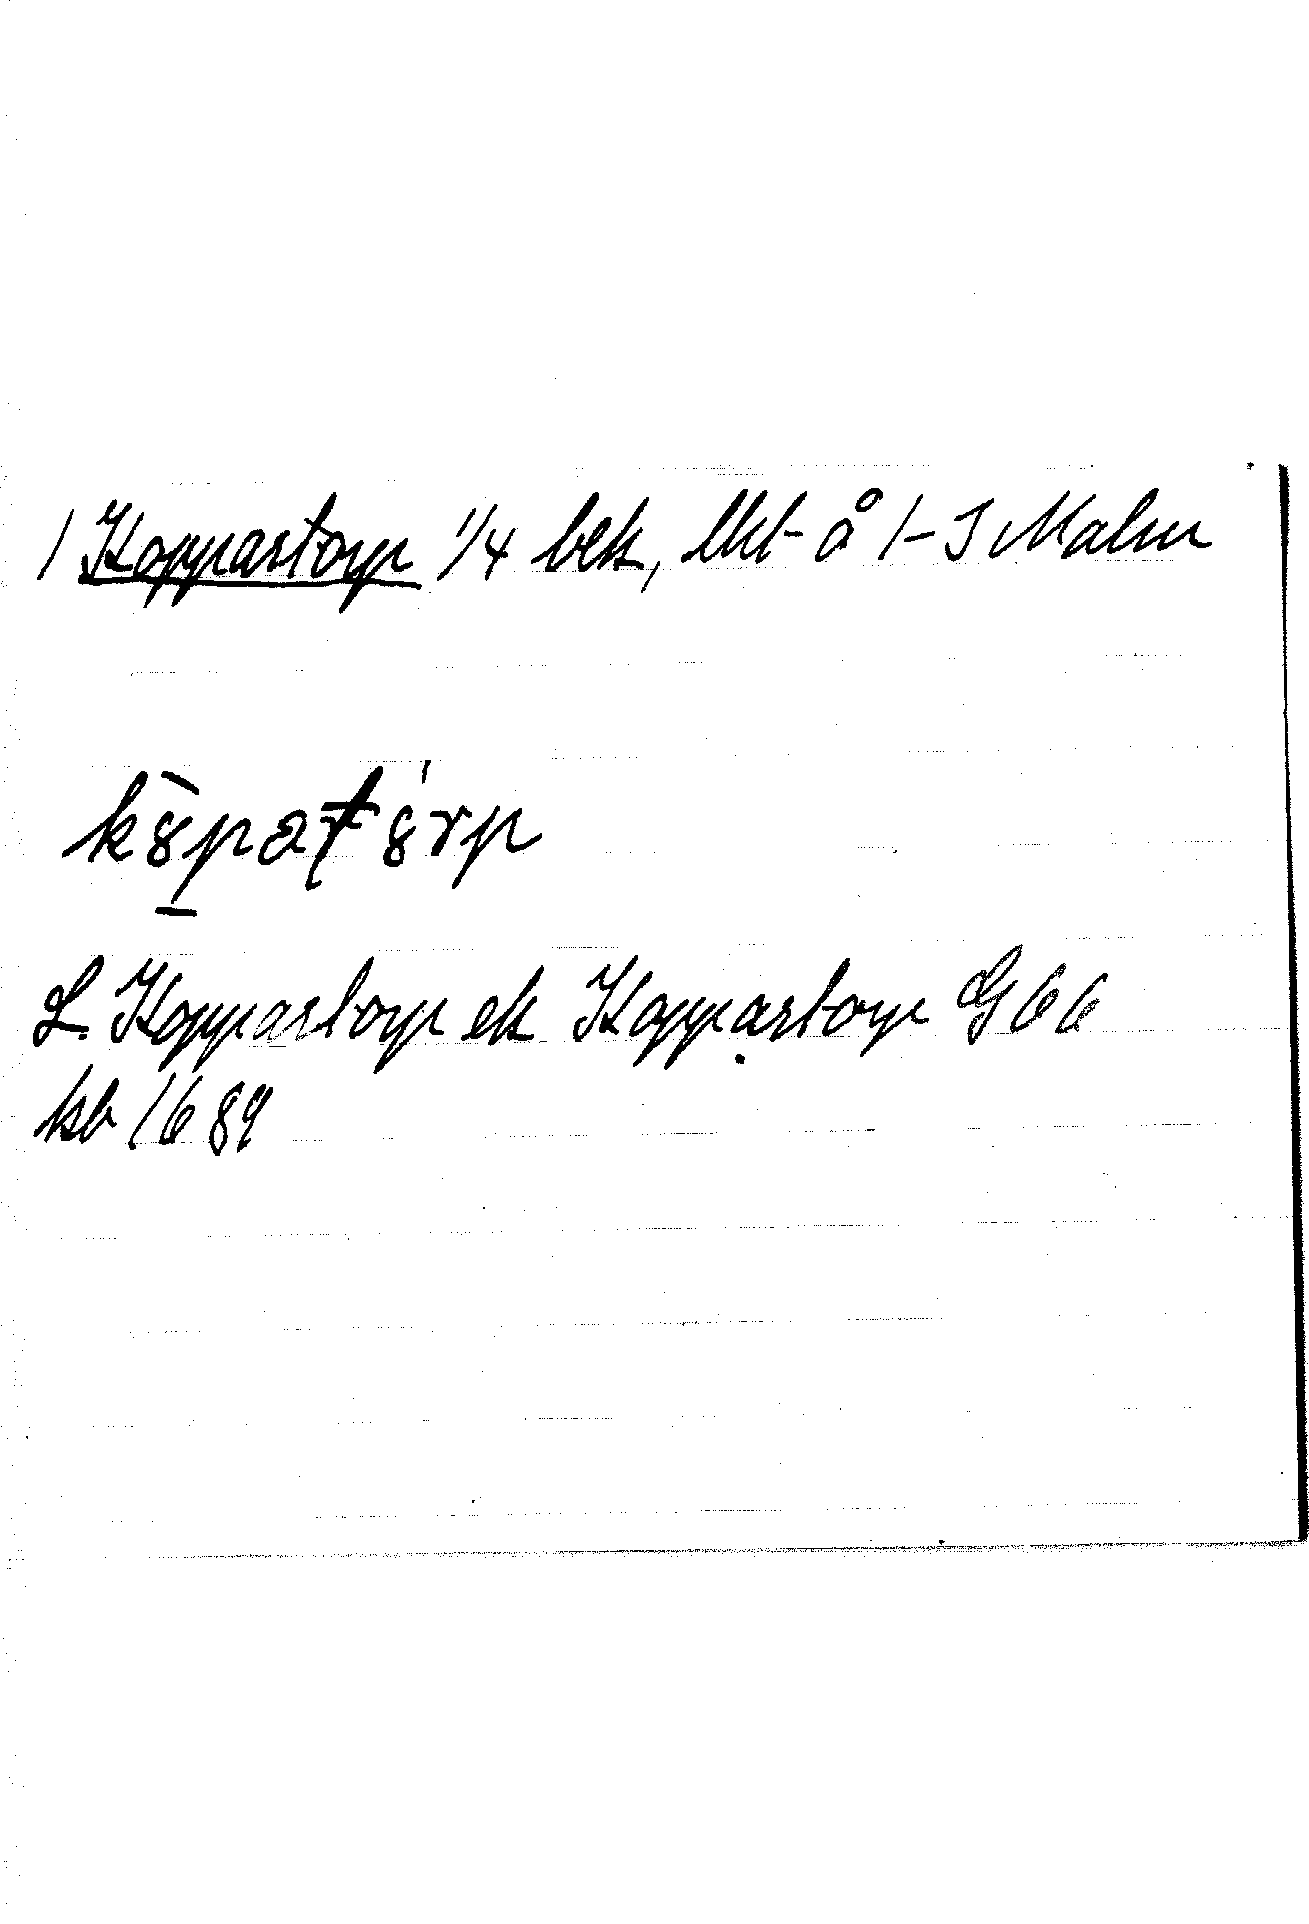 1 Koppartorp 1/4 bek, Ukt- å 1-3 Malm
k8pat8rp
L. Koppartorp ek Koppartorp G 66
kb 1689